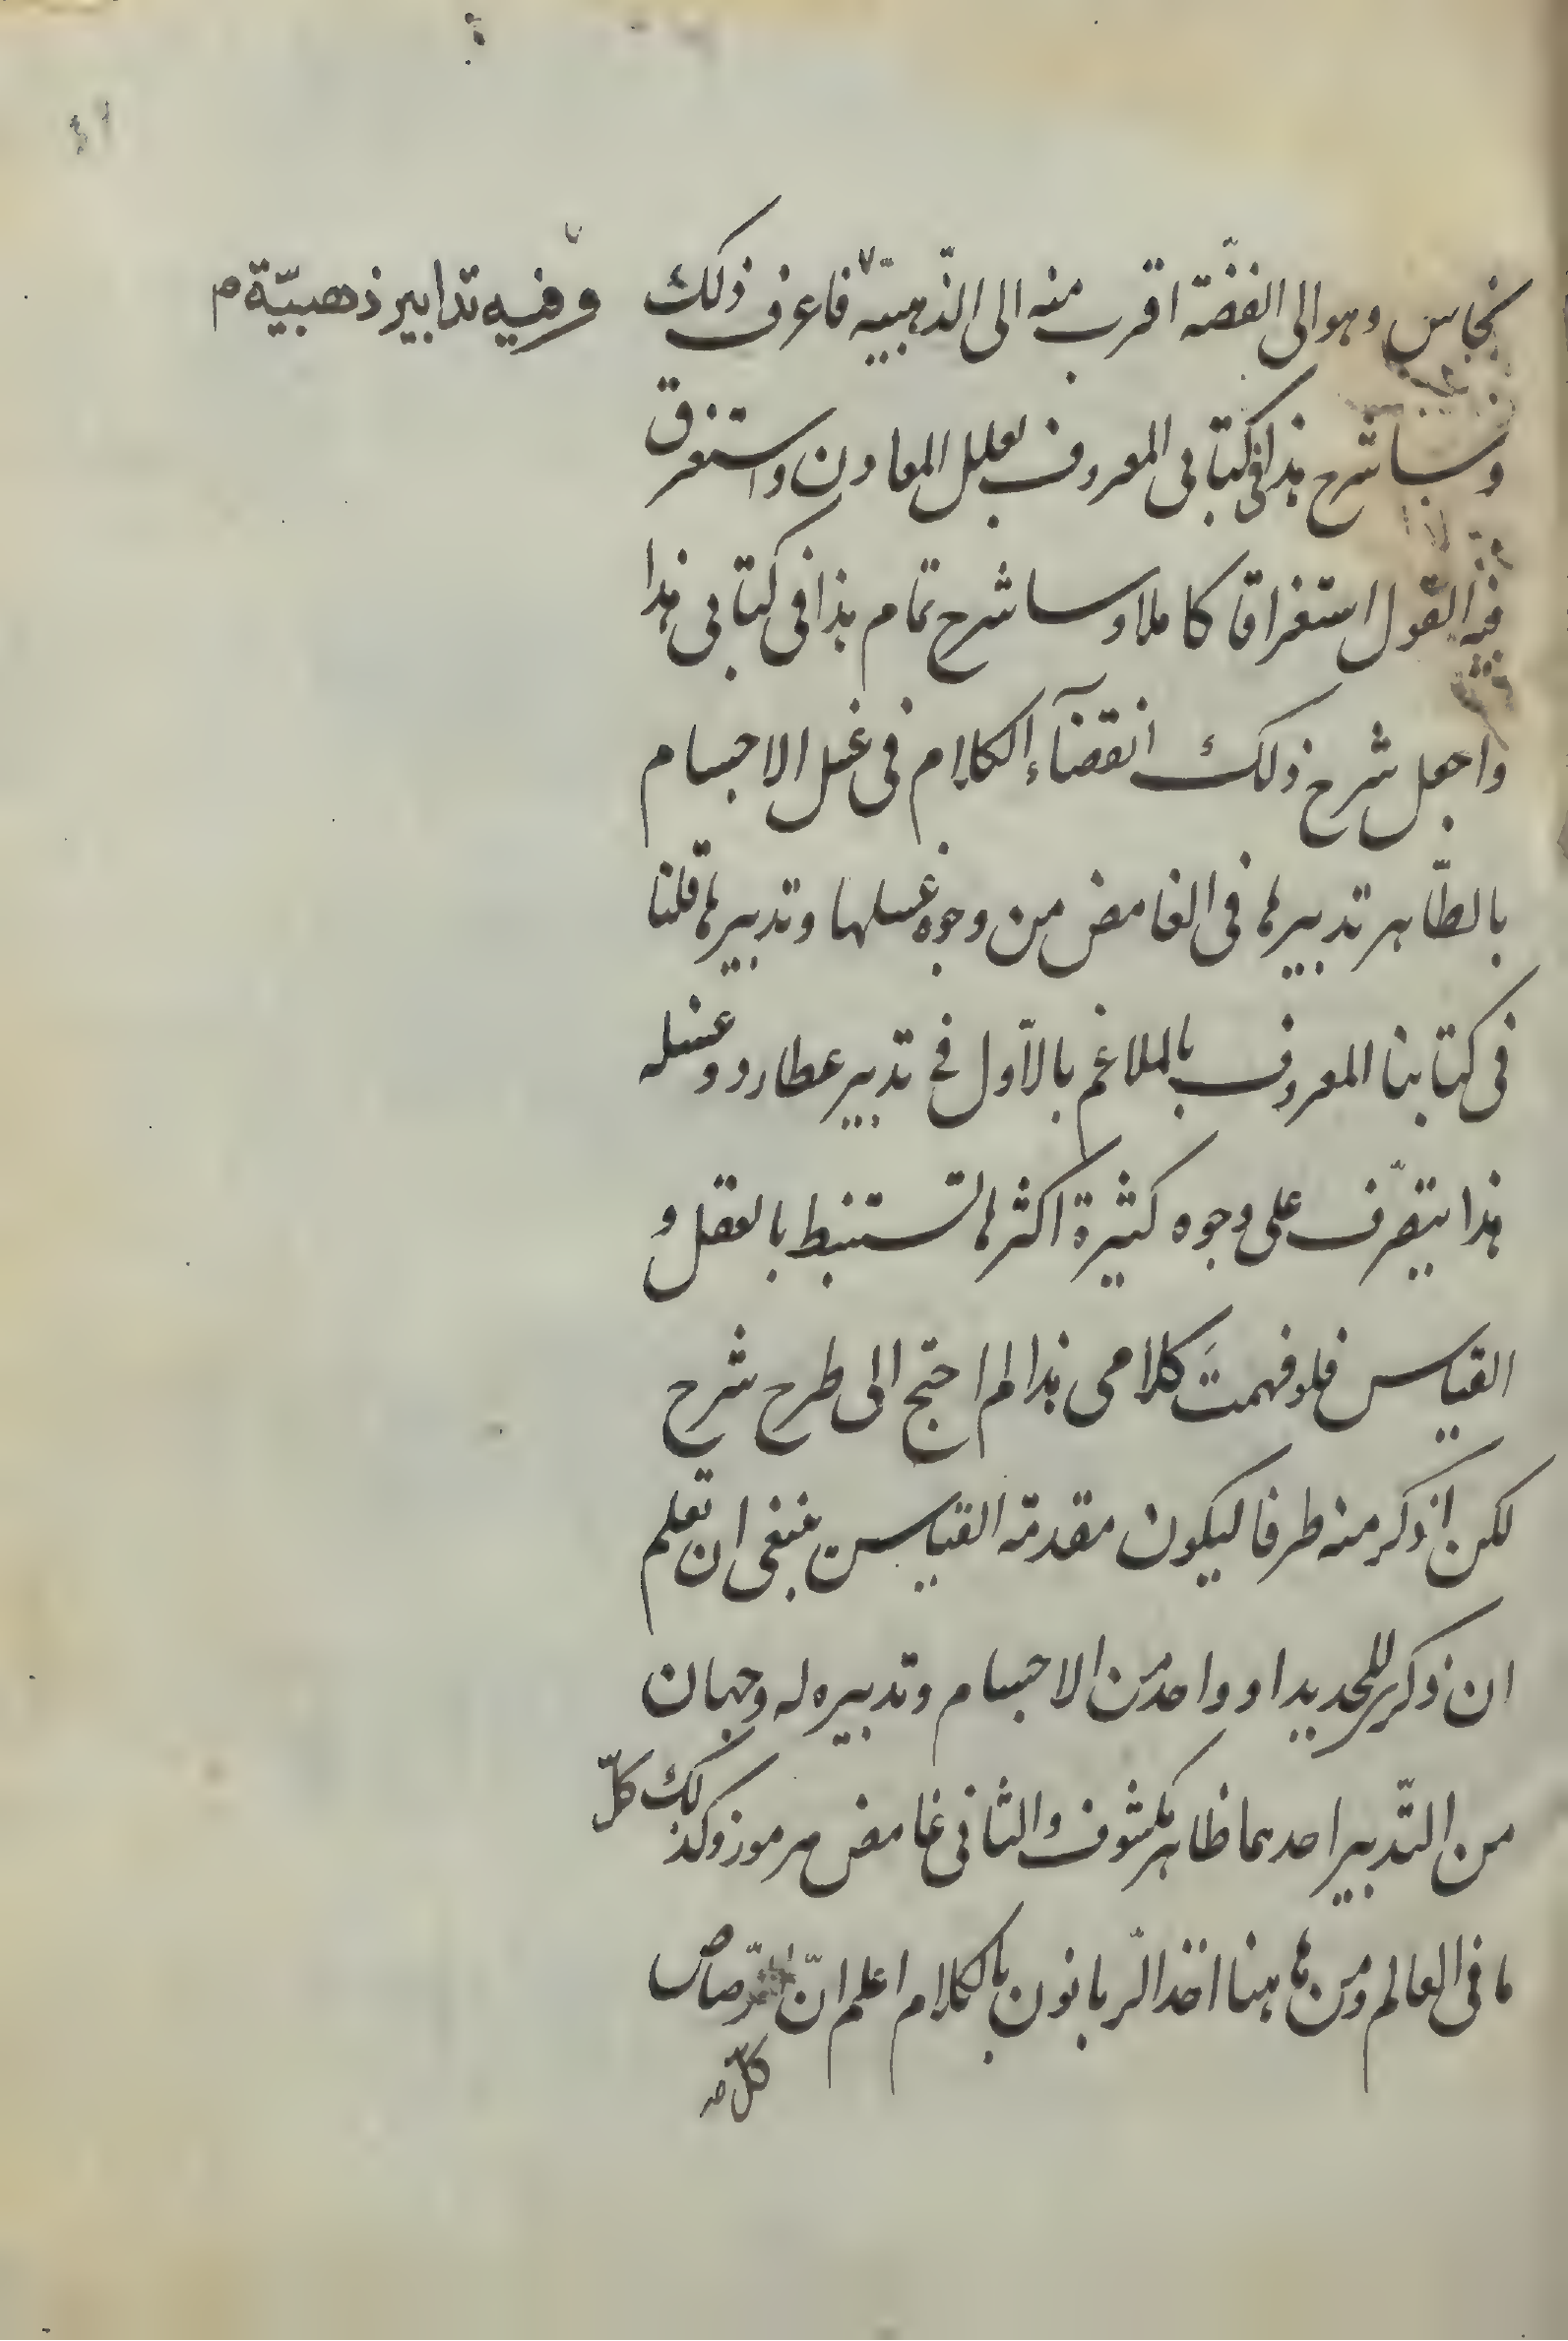 نحاس وهو الى الفضّة اقرب منه الى الذّهبيّة فاعرف ذلك
وفيه تدابير ذهبيّة م
وساشرح هذا فى كتابى المعروف بعلل المعادن واستغرق
فيه القول استغراقا كاملا وساشرح تمام هذا فى كتابى هذا
واجعل شرح ذلك انقضآء الكلام فى غسل الاجسام
بالطّاهر تدبيرها فى الغامض من وجوه غسلها وتدبيرها قلنا
فى كتابنا المعروف بالملاغم بالاوّل فى تدبير عطارد وغسله
هذا يتصّرف على وجوه كثيرة اكثرها تستنبط بالعقل و
القياس فلو فهمتَ كلامى هذا لم احتج الى طرح شرح
لكن اذكر منه طرفا ليكون مقدمة القياس ينبغى ان تعلم
ان ذكرى للحديد او واحد من الاجسام وتدبيره له وجهان
من التّدبير احدهما ظاهر مكشوف والثانى غامض مرموز وكذلك كلّ
ما فى العالم ومن هاهنا اخذ الرّبانون بالكلام اعلم انّ الرّصاص
كلّه